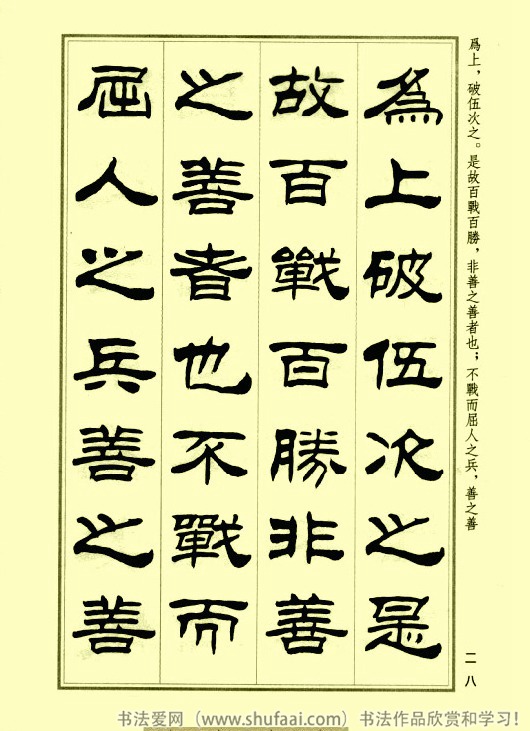 爲上，破伍次之。是故百戰百勝，非善之善者也；不戰而屈人之兵，善之善
為上破伍次之是
故百戰百勝非善
之善者也不戰而
屈人之兵善之善
二八
书法爱网（www.shufaai.com）书法作品欣赏和学习！